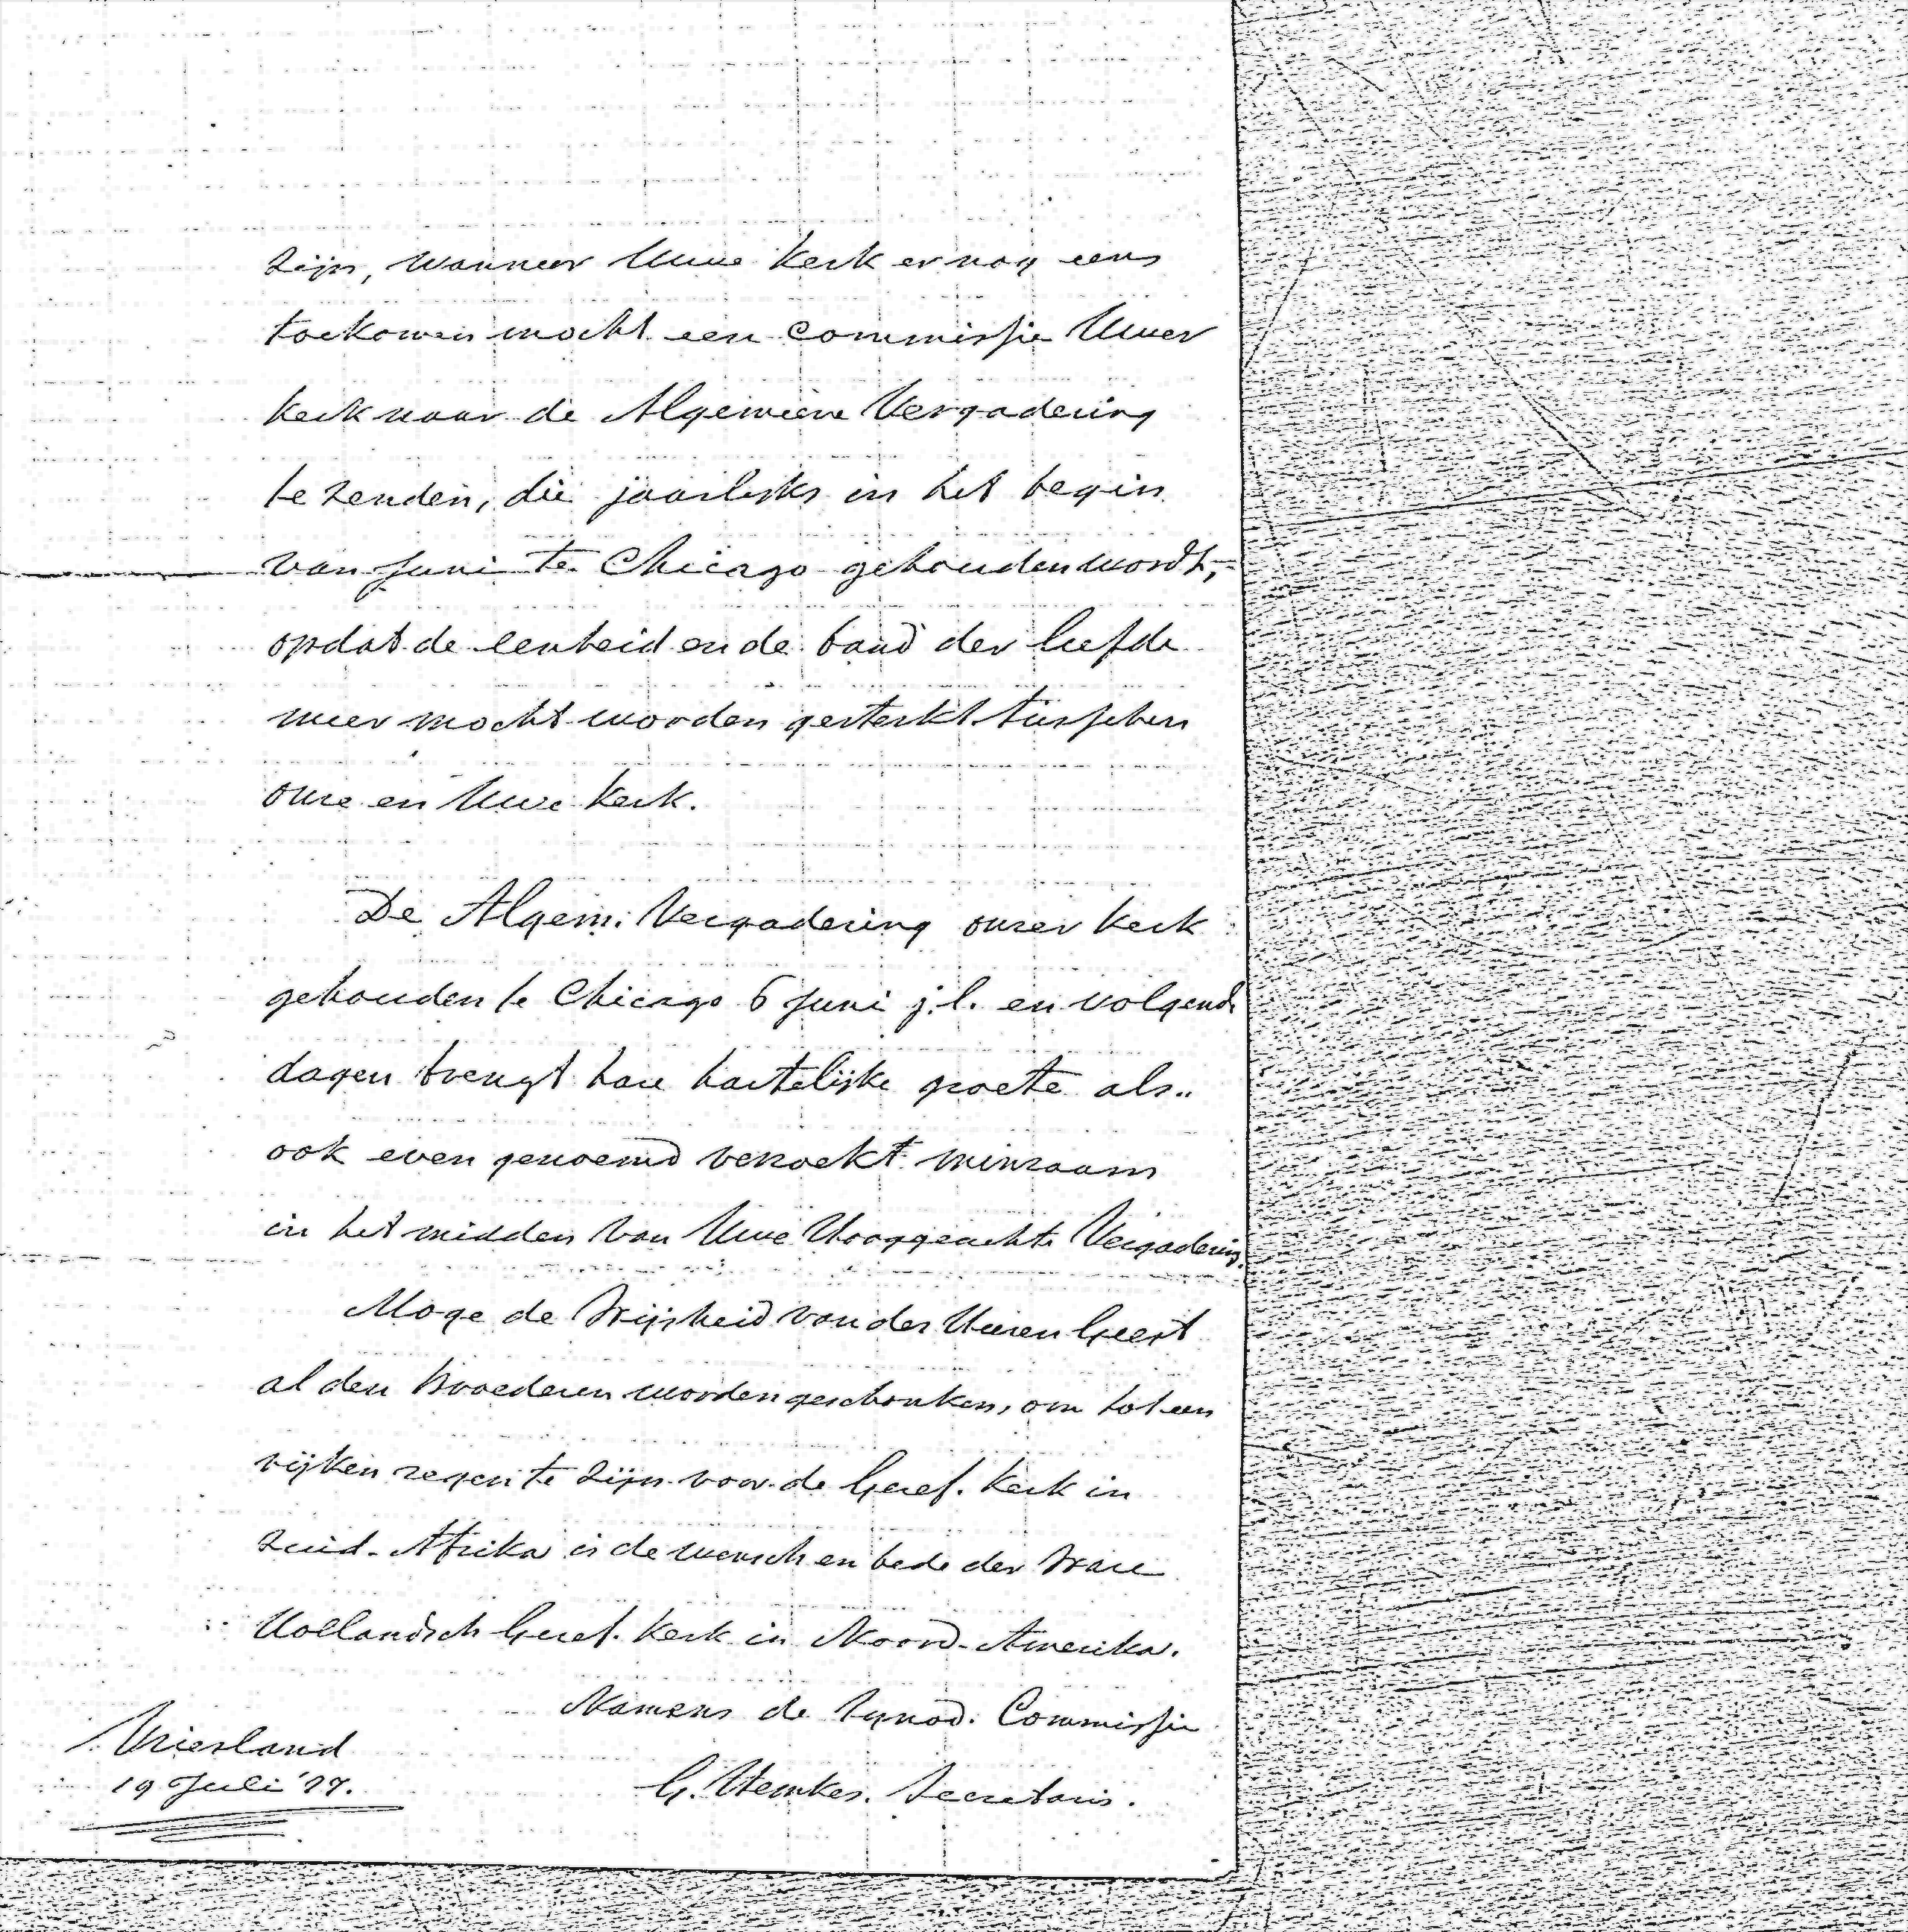 zijn, wanneer Uwe Kerk er nog eens
toekomen mocht een commissie Uwer
kerk naar de Algemeene Vergadering
te zenden, die jaarlijks in het begin
van Juni te Chicago gehouden wordt,
opdat de eenheid en de band der liefde
meer mocht worden gesterkt tusschen
onze en Uwe kerk.
De Algem. Vergadering onzer kerk
gehouden te Chicago 6 Juni j.l. en volgende
dagen brengt hare hartelijke groete als
ook even genoemd verzoekt minzaam
in het midden van Uwe Hooggeachte Vergadering.
Moge de Wijsheid van den Heiligen Geest
al den Broederen worden geschonken, om tot een
rijken zegen te zijn voor de Geref. Kerk in
Zuid-Afrika is de wensch en bede der Ware
Hollandsch Geref. Kerk in Noord-Amerika.
Namens de Synod. Commissie
Vriesland
G. Hemkes. Secretaris.
19 Juli '77.